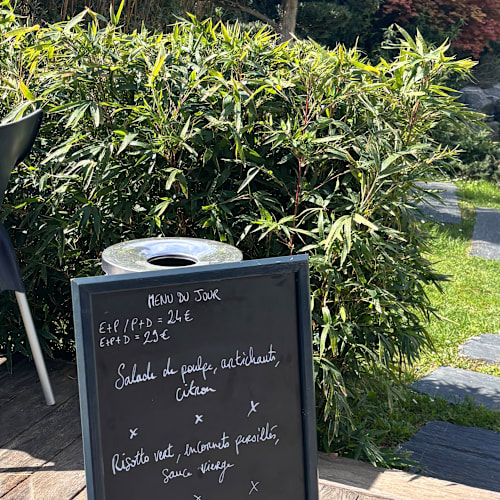 MENU DU JOUR
E+P / P+D = 24€
E+P+D = 29€
Salade de poulpe, artichauts,
citron
x x x
Risotto vert, encornets persillés,
sauce vierge
x x